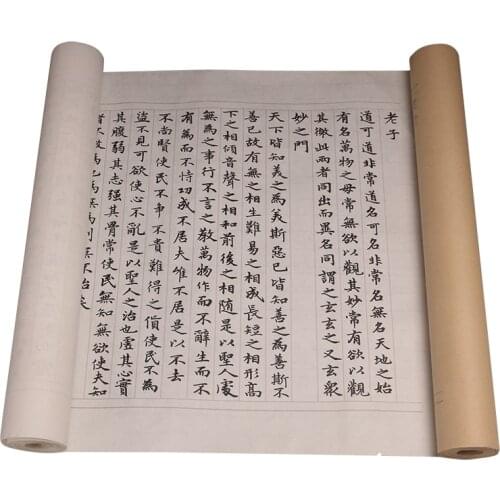 老子
道可道非常道名可名非常名無名天地之始
有名萬物之母常無欲以觀其妙常有欲以觀
其徼此兩者同出而異名同謂之玄玄之又玄衆
妙之門
天下皆知美之為美斯惡已皆知善之為善斯不
善已故有無之相生難易之相成長短之相形高
下之相傾音聲之相和前後之相隨是以聖人處
無為之事行不言之教萬物作而不辭生而不
有為而不恃功成不居夫惟不居是以不去
不尚賢使民不争不貴難得之貨使民不為
盜不見可欲使心不亂是以聖人之治也虛其心實
其腹弱其志强其骨常使民無知無欲使夫知
者不敢為也為無為則無不治矣